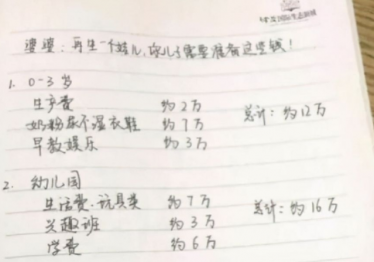 婆婆：再生一个娃儿，你儿子需要准备这些钱！
1. 0-3岁
生产费 约2万
奶粉尿不湿衣鞋 约7万 总计：约12万
早教娱乐 约3万
2. 幼儿园
生活费、玩具类 约7万 总计：约16万
兴趣班 约3万
学费 约6万